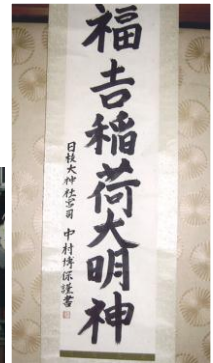 福吉稲荷大明神
日枝大神社宮司 中村博保謹書